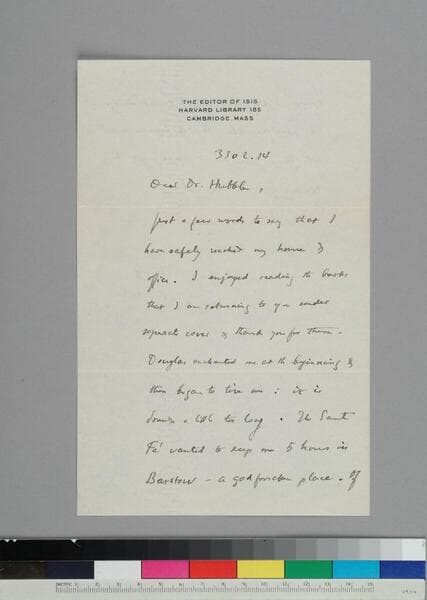 THE EDITOR OF ISIS
HARVARD LIBRARY 185
CAMBRIDGE, MASS
3302.14
Dear Dr. Hubble,
Just a few words to say that I
have safely reached my home &
office. I enjoyed reading the books
that I am returning to you under
separate cover & thank you for them.
Douglas enchanted me at the beginning &
then began to tire me : it is
a little too long. The Santa
Fé wanted to keep me 5 hours in
Barstow – a godforsaken place. Of